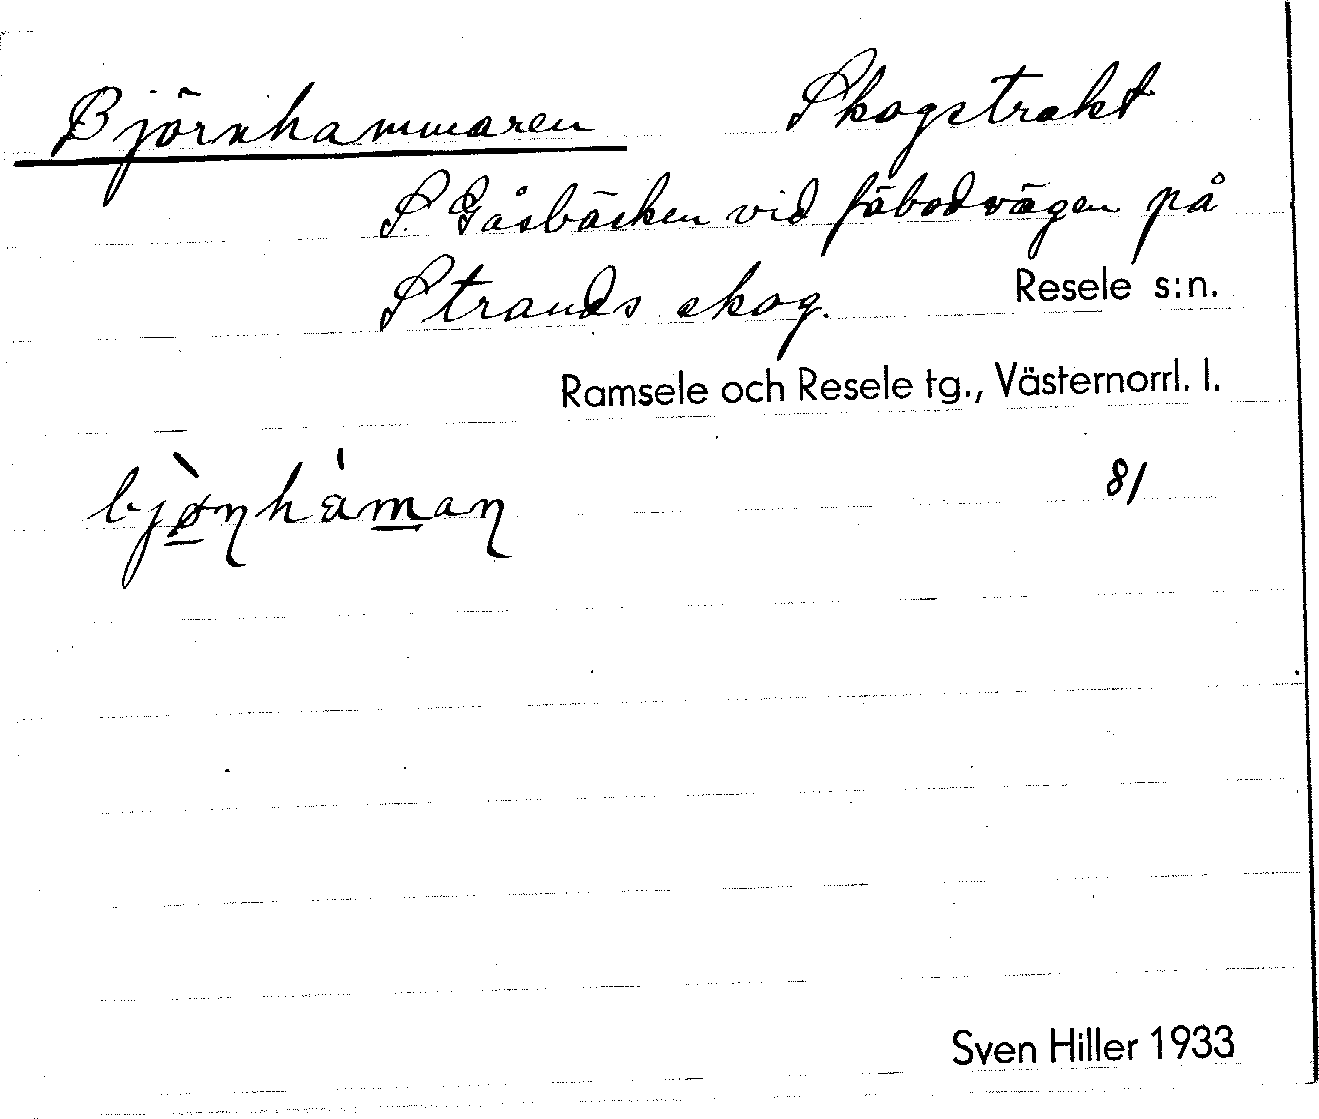 Björnhammaren Skogstrakt
S. Gåsbäcken vid fäbodvägen på
Strands skog. Resele s:n.
Ramsele och Resele tg., Västernorrl. l.
81
Sven Hiller 1933